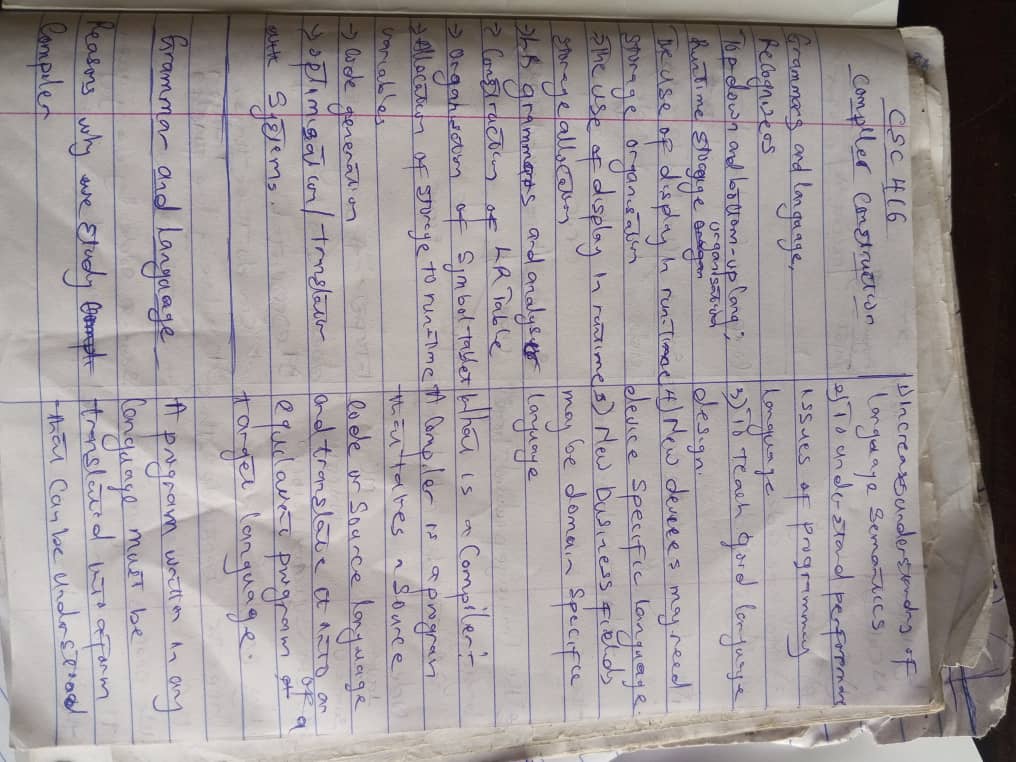 CSC 416
Compiler Construction
Grammars and language,
Recognizers
Top-down and bottom-up lang;
Runtime storage organisation
The use of display in run-time
storage organisation
→ The use of display in runtime
storage allocation
→ LR grammars and analyser
→ Construction of LR Table
→ Organisation of Symbol tablet
→ Allocation of storage to run-time
variables
→ Code generation
→ optimisation/translation
Systems.
Grammar and language
Reasons why we study
Compiler
1) Increases understanding of
language semantics
2) To understand performance
issues of programming
language
3) To teach good language
design.
4) New devices may need
device specific language.
5) New business fields
may be domain specific
language
What is a Compiler:-
A Compiler is a program
that takes a source
code or source language
and translate it into an
equivalent program of a
target language.
A program written in any
language must be
translated into a form
that can be understood